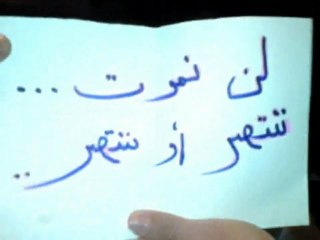 لن نموت ...
ننتصر أو ننتصر ..